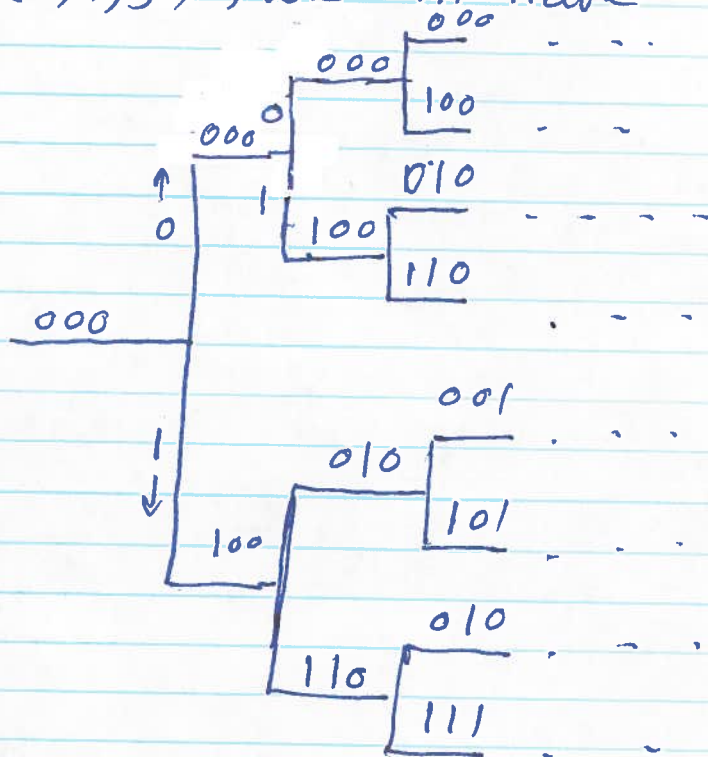 000
000
100
000
0
000
1
010
0
100
110
000
001
1
010
101
100
010
110
111